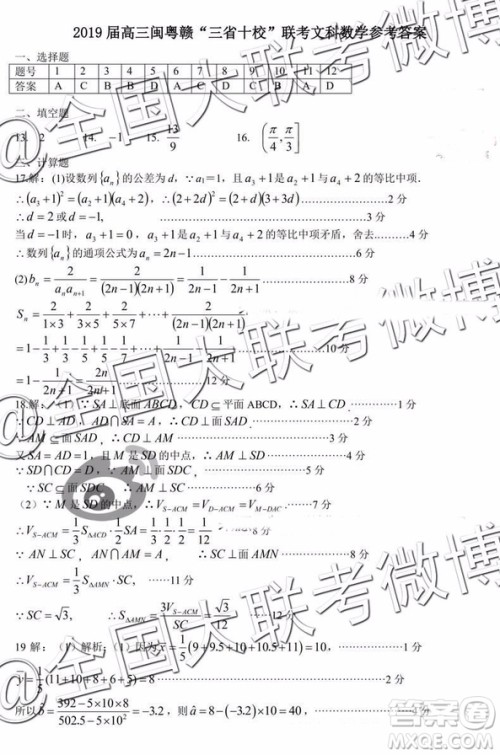 2019 届高三闽粤赣“三省十校”联考文科数学参考答案
一、选择题
题号 1 2 3 4 5 6 7 8 9 10 11 12
答案 A C B D
二、填空题
13. 2 14. −1 15. 13/9 16. (π/4, π/3]
三、计算题
17.解：(1)设数列{aₙ}的公差为 d，∵a₁=1，且 a₃+1 是 a₁+1 与 a₄+2 的等比中项.
∴(a₃+1)²=(a₁+1)(a₄+2)，∴(2+2d)²=(2)(3+3d)
∴d=2 或 d=−1,
当 d=−1 时，a₃+1=0，a₃+1 是 a₁+1 与 a₄+2 的等比中项矛盾，舍去……4 分
∴数列{aₙ}的通项公式为 aₙ=2n−1……6 分
(2) bₙ = 2/(aₙaₙ₊₁) = 2/((2n−1)(2n+1)) = 1/(2n−1) − 1/(2n+1) ……8 分
Sₙ = 2/(1×3) + 2/(3×5) + 2/(5×7) + … + 2/((2n−1)(2n+1))
=1−1/3+1/3−1/5+…+1/(2n−1)−1/(2n+1) ……10 分
=1−1/(2n+1)=2n/(2n+1)
18.解：（1）∵SA⊥底面 ABCD，CD⊆平面 ABCD，∴SA⊥CD ……1 分
∵CD⊥AD，AD∩SA=A，∴CD⊥面 SAD
∵AM⊆面 SAD，∴CD⊥AM ……3 分
又 SA=AD=1，且 M 是 SD 的中点，∴AM⊥SD
∵SD∩CD=D，∴AM⊥面 SDC
∵SC⊆面 SDC，∴SC⊥AM ……5 分
（2）∵M 是 SD 的中点，∴V_{S−ACM}=V_{D−ACM}=V_{M−DAC}
∴V_{S−ACM}=1/3 S_{△ACD}·1/2 SA=1/3·1/2·1/2=1/12 ……8 分
∵AN⊥SC，AN∩AM=A，∴SC⊥面 AMN ……8 分
∴V_{S−ACM}=1/3 SC·S_{△AMN}，……11 分
∵SC=√3，∴S_{△AMN}=3V_{S−ACM}/SC=√3/12
19 解：（1）解析：（1）因为 x̄=1/5(9+9.5+10+10.5+11)=10,
ȳ=1/5(11+10+8+6+5)=8
所以 b̂=(392−5×10×8)/(502.5−5×10²)=−3.2，则 â=8−(−3.2)×10=40，
@全国大联考微博
答案圈